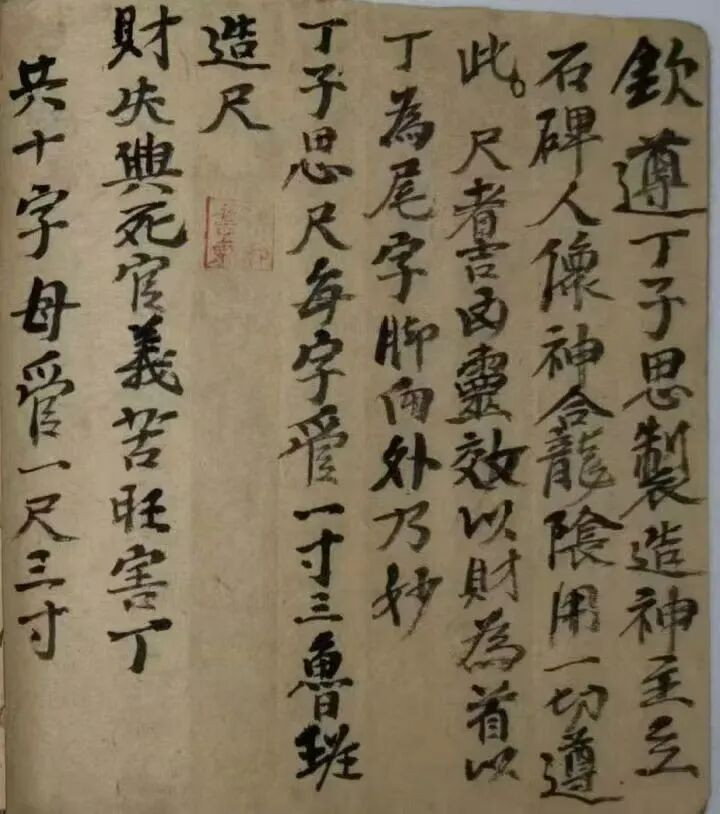 欽遵丁子思製造神主立
石碑人像神合龍陰用一切遵
此。尺者吉凶靈效以財為首以
丁為尾字腳向外乃妙
丁子思尺每字管一寸三魯班
造尺
財失興死官義苦旺害丁
共十字母管一尺三寸